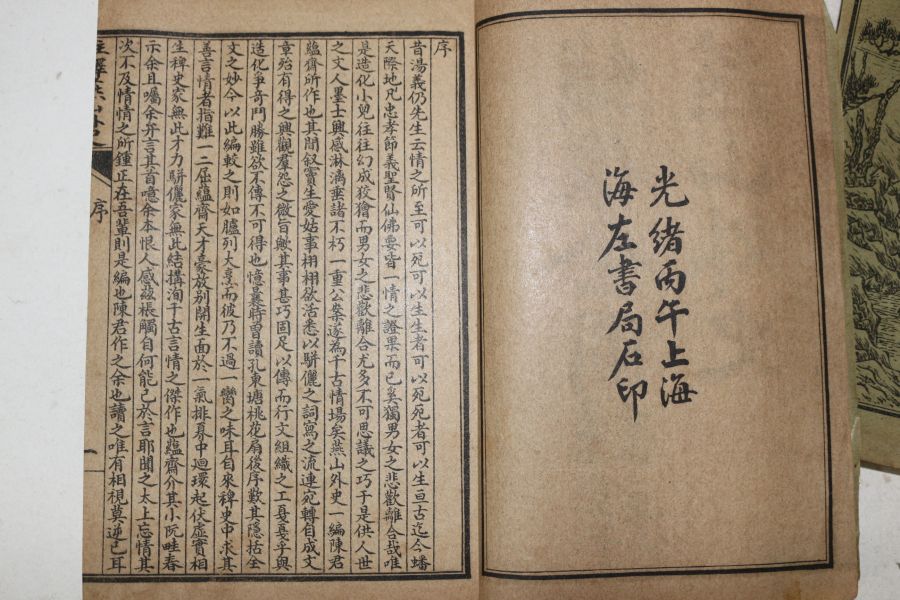 光緒丙午上海
海左書局石印
序
昔湯義仍先生云情之所至可以死可以生生者可以死死者可以生亘古迄今蟠
天際地凡忠孝節義聖賢仙佛要皆一情之證果而已奚獨男女之悲歡離合哉唯
是造化小兒往往幻成狡獪而男女之悲歡離合尤多不可思議之巧于是供人世
之文人墨士興感淋漓垂諸不朽一重公案遂為千古情場矣燕山外史一編陳君
蘊齋所作也其間叙竇生愛姑事栩栩欲活悉以駢儷之詞寫之流連宛轉自成文
章殆有得之興觀羣怨之微旨歟其事甚巧固足以傳而行文組織之工戛戛乎與
造化爭奇鬥勝雖欲不傳不可得也憶曩蒔曾讀孔東塘桃花扇後序歎其隱括全
文之妙今以此編較之則如臚列大烹而彼乃不過一臠之味耳自來稗史中求其
善言情者指難一二屈蘊齋天才豪放别開生面於一氣排奡中迴環起伏虛實相
生稗史家無此才力駢儷家無此結搆洵千古言情之傑作也蘊齋介其小阮畦春
示余且囑余弁言其首噫余本恨人感茲棖觸自何能已於言耶聞之太上忘情其
次不及情情之所鍾正在吾輩則是編也陳君作之余也讀之唯有相視莫逆已耳
序
一